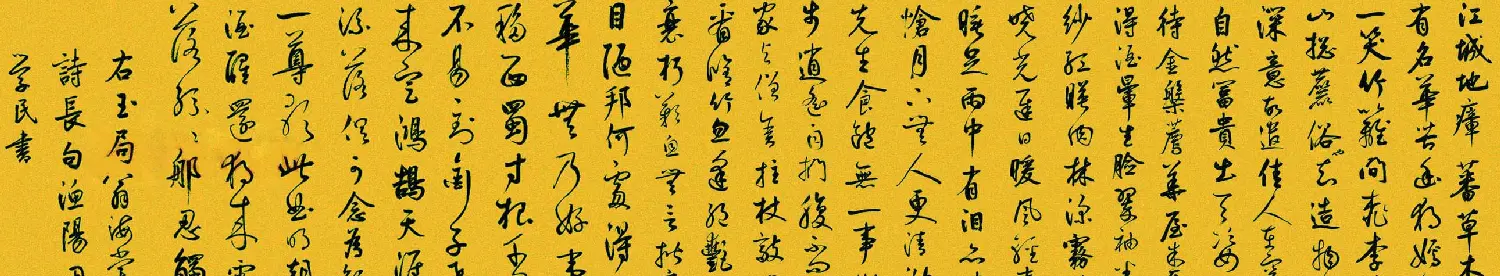 江城地瘴蕃草
有名華苦幽獨嫣
一笑竹籬間桃李
山總麤俗也知造物
深意故遣佳人在空
自然冨貴出天姿
待金槃薦華屋朱
得酒暈生臉翠袖
紗紅映肉林深霧
曉光遲日暖風輕
睡足雨中有淚亦
愴月下無人更清
先生食飽無一事
步逍遙自捫腹不問
家與僧舍拄杖敲
看脩竹忽逢絕艷
衰朽歎息無言揩
目陋邦何處得
華無乃好事
移西蜀寸根千
不易到銜子飛
來定鴻鵠天涯
流落俱可念為
一尊歌此曲明朝
酒醒還獨來雪
落紛〻那忍觸
右玉局翁海棠
詩長句漁陽
学民書